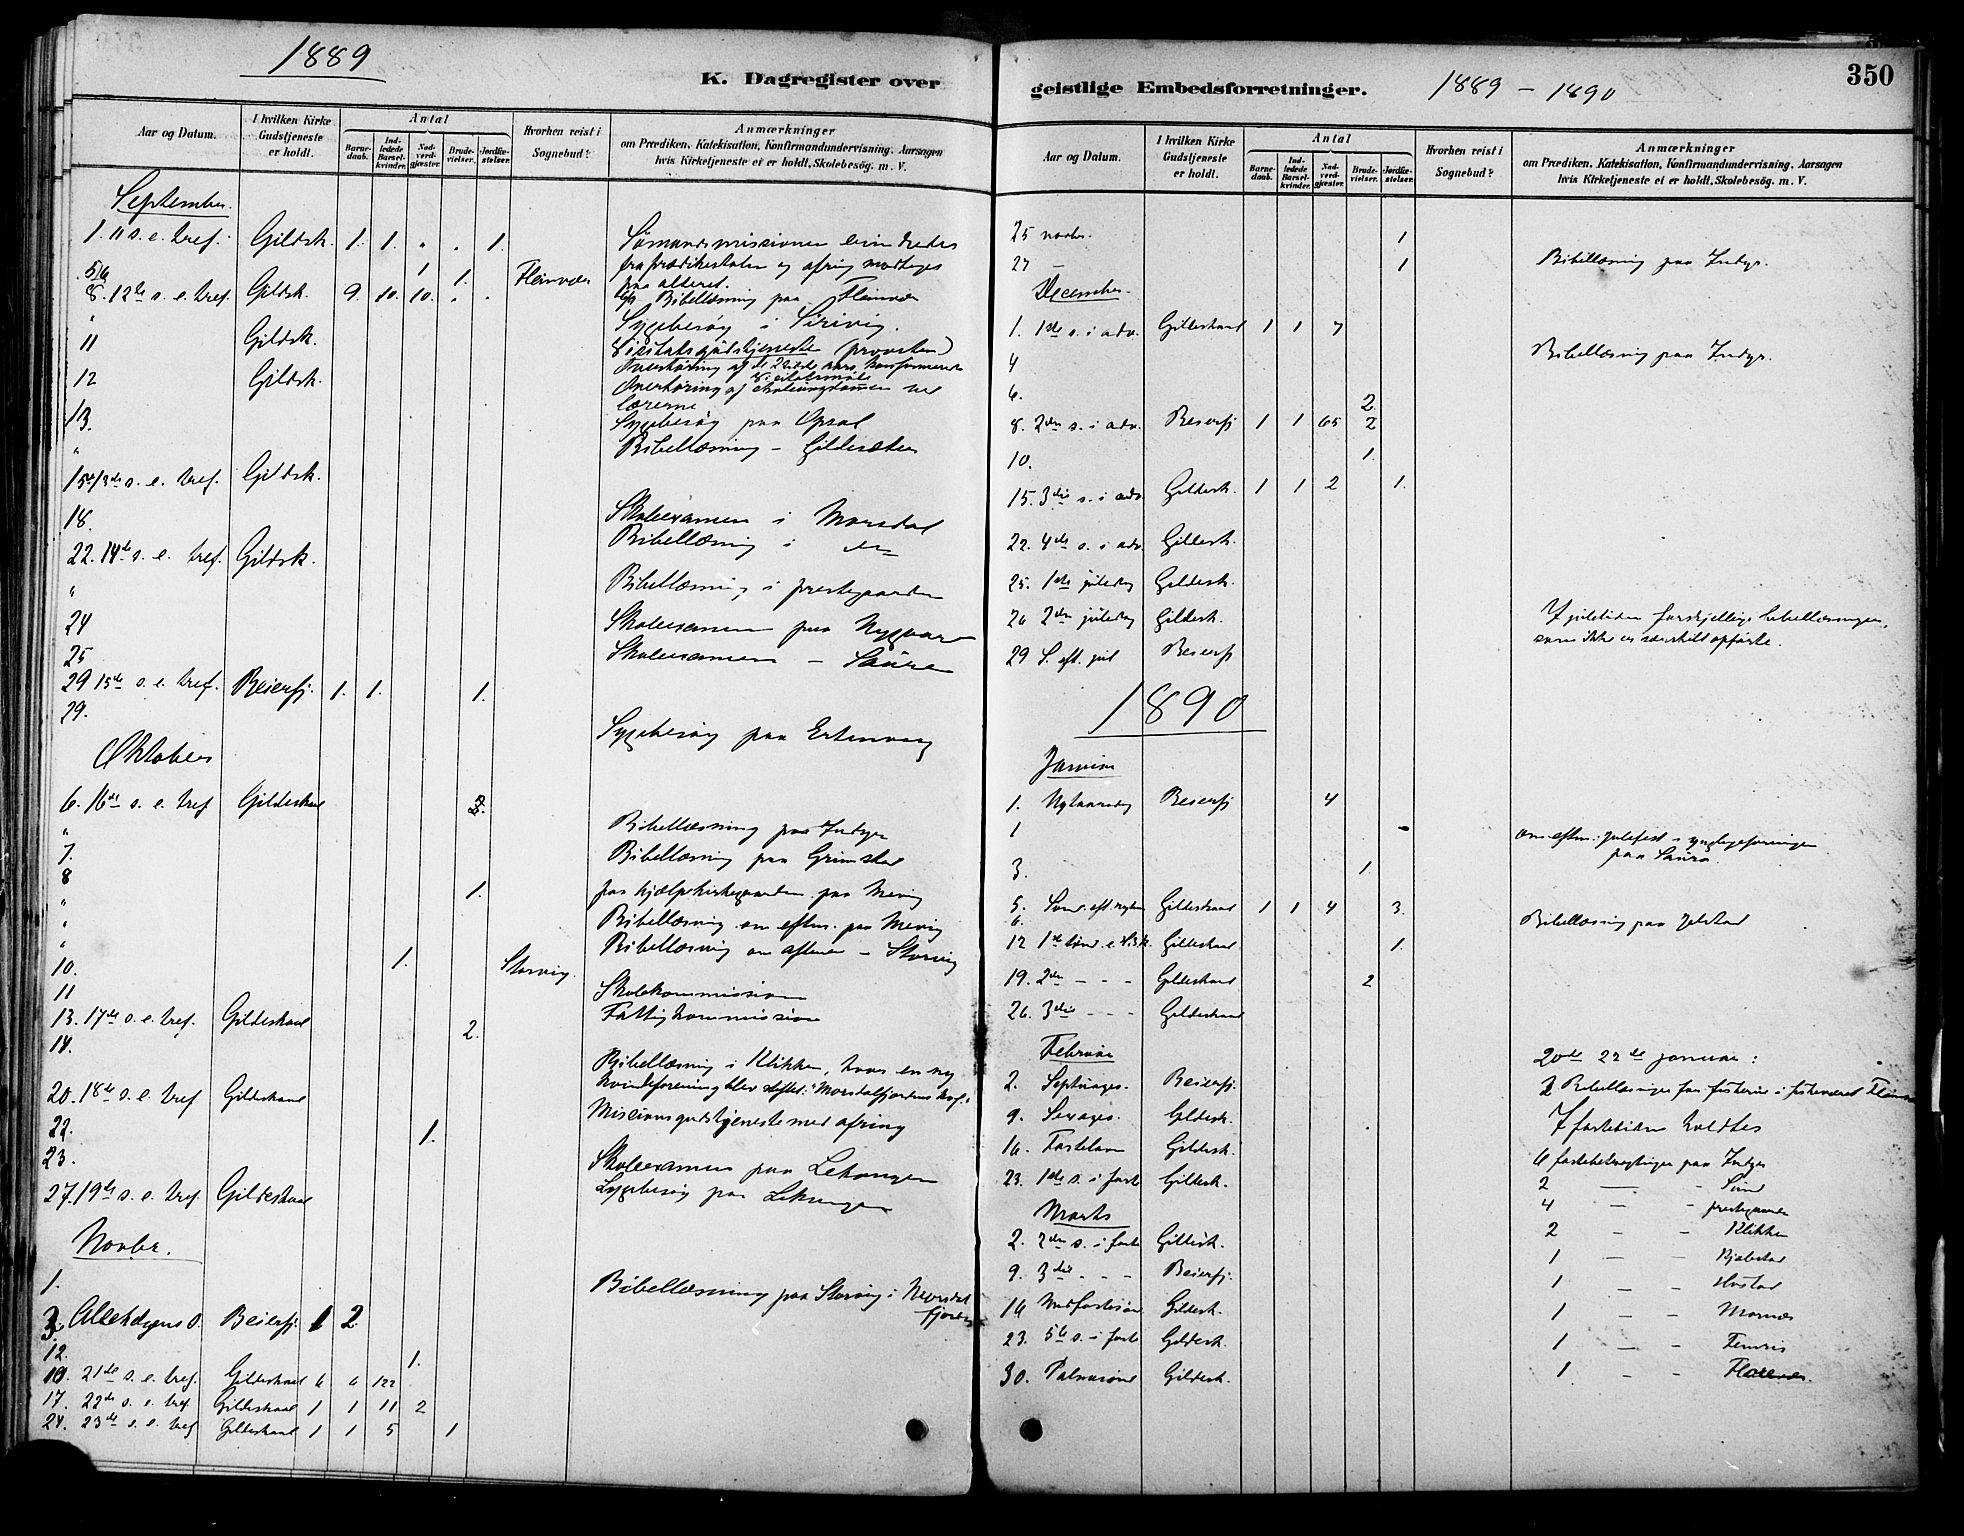 1889
K. Dagregister over
Aar og Datum.
I hvilken Kirke Gudstjeneste er holdt.
Antal
Barnedaab.
Indledede Barselkvinder.
Nadverdgjester.
Brudevielser.
Jordfæstelser.
Hvorhen reist i Sognebud?
Anmærkninger
om Prædiken, Katekisation, Konfirmandundervisning, Aarsagen
hvis Kirketjeneste ei er holdt, Skolebesøg. m. V.
September.
1. 11 s. e. tref. Gildsk. 1. 1. " . 1. Sømandsmissionen
fra prædikestolen og ofring modtoges
5/6 1 1. Fleinvær paa alteret.
8. 12te s. e. tref. Gildsk. 9. 10. 10. . . Bibellæsning paa Fleinvær
" Sygebesøg i
11 Gildsk. Visitatsgudstjeneste (provsten)
12 Gildsk. Overhøring af skoleungdommen ved
lærerne
13. Sygebesøg paa Opsal
" Bibellæsning -
15. 13de s. e. tref. Gildsk.
18. Skoleexamen i Morsdal
Bibellæsning i do
22. 14de s. e. tref. Gildsk.
" Bibellæsning i prestegaarden
24 Skoleexamen paa Nygaar
25 Skoleexamen - Saura
29 15de s. e. tref. Beierfj. 1. 1. 1.
29. Sygebesøg paa Ertenvaag
Oktober
6. 16de s. e. tref Gildeskaal
" Bibellæsning paa Indyr
7. Bibellæsning paa Grimstad
8 1. paa hjælpekirkegaarden paa Mevig
" Bibellæsning om efterm. paa Mevig
" Bibellæsning om aftenen - Storvig
10. 1. Storvig.
11 Skolekommission
13. 17de s. e. tref. Gildeskaal Fattigkommission
14. 2.
Bibellæsning i Klikken, hvor en ny
20. 18de s. e. tref Gildeskaal kvindeforening blev stiftet: Morsdalfjordens kvf.
Missionsgudstjeneste med ofring
22. 1.
23. Skoleexamen paa Lekangen
27. 19de s. e. tref. Gildeskaal Sygebesøg paa Lekangen
Novbr.
1. Bibellæsning paa Storvig i Morsdal
fjorden
3. Allehelgens s. Beierfj. 1 2.
12. 1.
10. 21de s. e. tref. Gildeskaal 6 6 122
17. 22de s. e. tref Gildeskaal 1 1 11 2
24. 23de s. e. tref Gildeskaal 1 1 5 1
geistlige Embedsforretninger.
1889 - 1890
350
Aar og Datum.
I hvilken Kirke Gudstjeneste er holdt.
Antal
Barnedaab.
Indledede Barselkvinder.
Nadverdgjester.
Brudevielser.
Jordfæstelser.
Hvorhen reist i Sognebud?
Anmærkninger
om Prædiken, Katekisation, Konfirmandundervisning, Aarsagen
hvis Kirketjeneste ei er holdt, Skolebesøg. m. V.
25 novbr. 1
27 - 1 Bibellæsning paa Indyr.
December.
1. 1ste s. i adv. Gildeskaal 1 1 7
4 Bibellæsning paa Indyr.
6. 2.
8. 2den s. i adv. Beierfj 1 1 65 2
10. 1.
15. 3die s. i adv Gildesk. 1 1 2 1.
22. 4de s. i adv. Gildesk.
25. 1ste juledag Gildesk.
26 2den juledag Gildesk. I juletiden forskjellige bibellæsninger,
som ikke er særskilt opførte.
29 S. eft. jul Beierfj
1890
Januar
1. Nytaarsdag Beierfj 4
1 - om efterm. julefest i ynglingeforeningen
paa Saura
3. 1.
5. Sønd. eft nytaar Gildeskaal 1 1 4 3.
6. Bibellæsning paa Jelstad
12 1ste sønd. e. H.3.K. Gildeskaal 1.
19. 2den - - - Gildeskaal 2
26. 3die - - - Gildeskaal
Februar 20de 22de januar:
2. Septuages. Beierfj. 2 Bibellæsninger for fiskerne i fiskeværet Fleinvær
9. Sexages. Gildesk. I fastetiden holdtes
16. Fastelavn Gildesk. 6 fastebetragtninger paa Indyr
23. 1ste s. i faste Gildesk. 2 — - Sund
Marts 4 - - prestegaarden
2. 2den s. i faste Gildesk. 2 - - Klikken
9. 3die - - - Beierfj. 1 - -
1 - -
16 Midfastesøn Gildesk. 1 - - Mornæs
23. 5te s. i faste Gildesk. 1 - - Femris
30. Palmesønd Gildesk. 1 - -